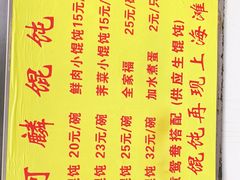 麟馄饨
馄饨 20元/碗 鲜肉小馄饨15元/
馄饨 23元/碗 荠菜小馄饨15元
馄饨 25元/碗 全家福 25元/碗
馄饨 32元/碗 加水煮蛋 2元/只
鸳鸯搭配(供应生馄饨)
馄饨再现上海滩